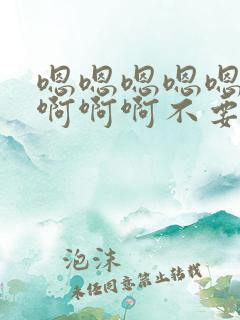 嗯嗯嗯嗯嗯
啊啊啊不要
泡沫
未经同意禁止转载